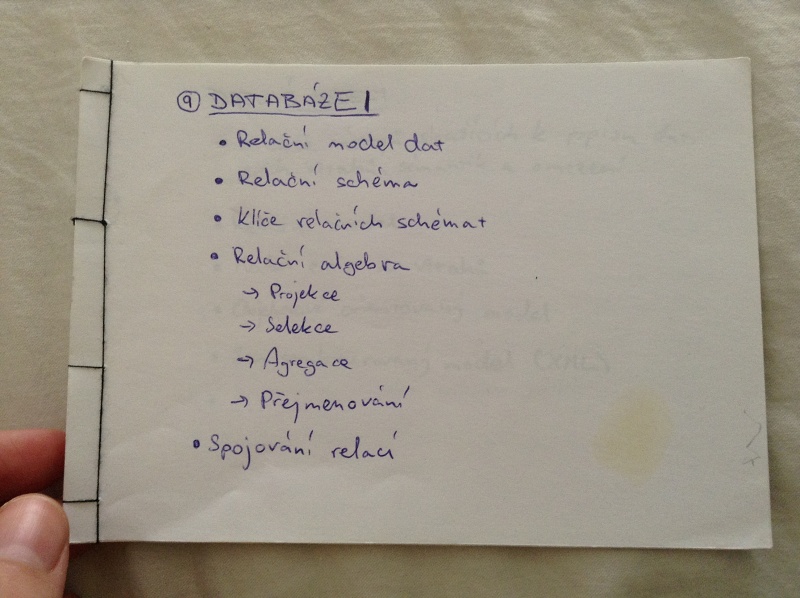 ⑨ DATABÁZE 1
• Relační model dat
• Relační schéma
• Klíče relačních schémat
• Relační algebra
→ Projekce
→ Selekce
→ Agregace
→ Přejmenování
• Spojování relací